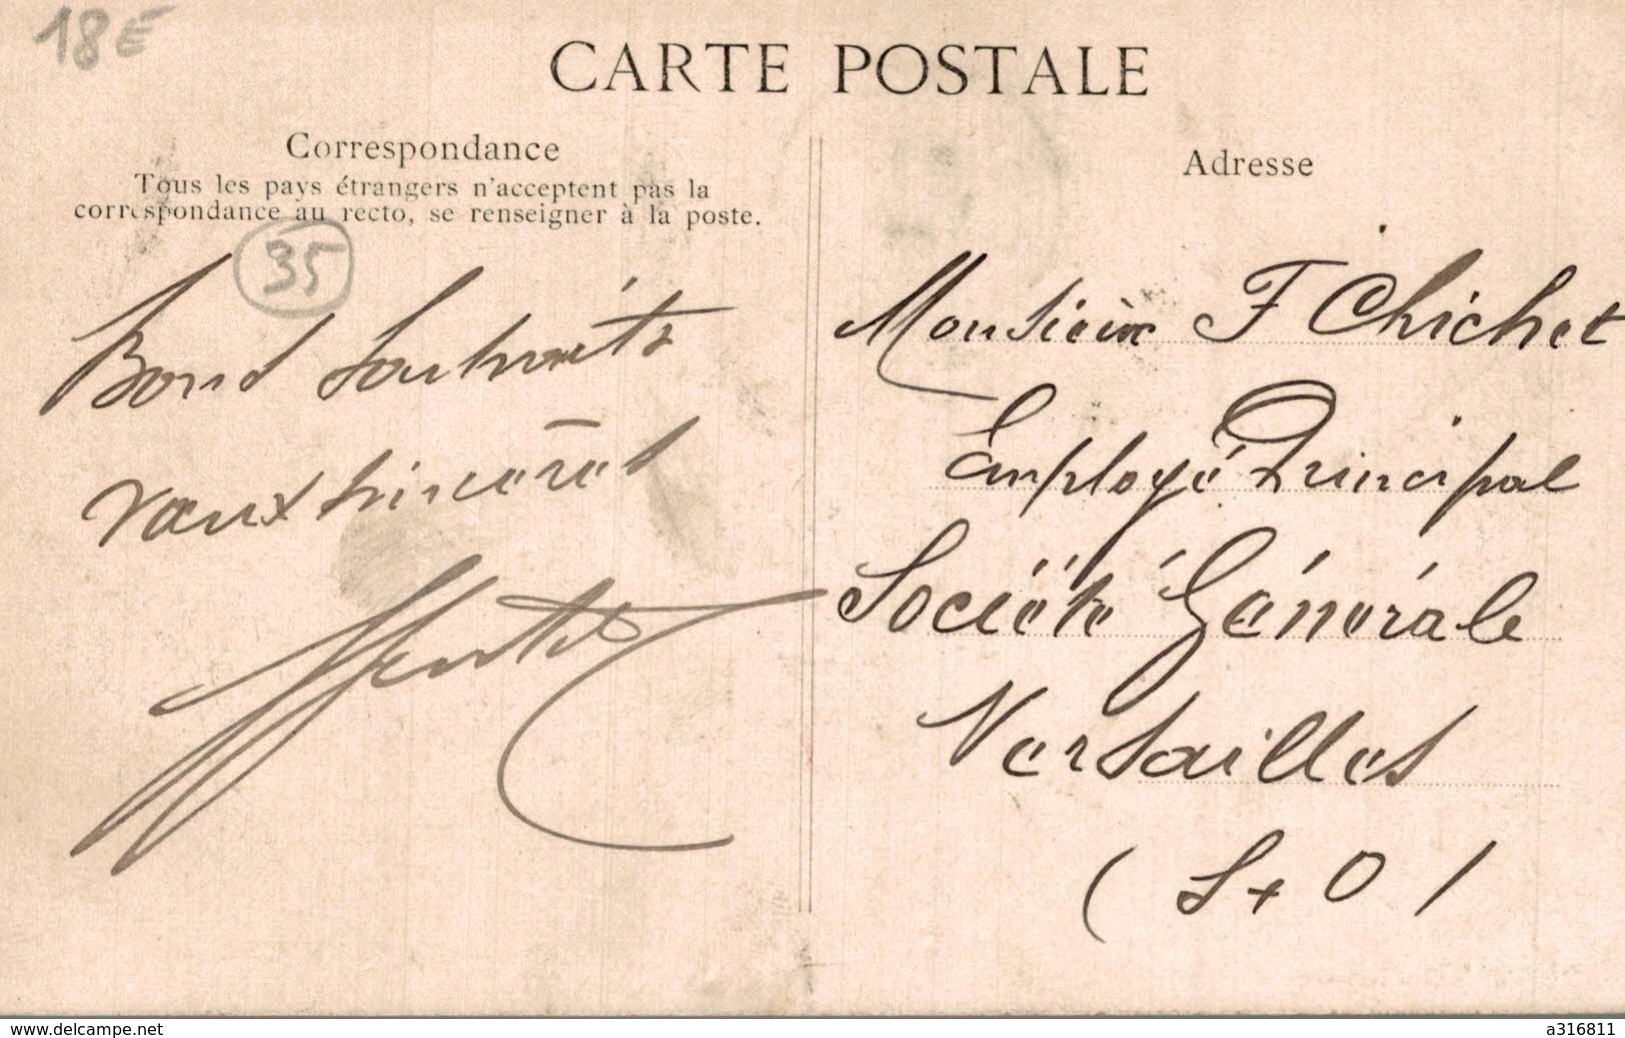 18E
CARTE POSTALE
Correspondance
Tous les pays étrangers n'acceptent pas la
correspondance au recto, se renseigner à la poste.
35
Bons Souhaits
vœux sincères
Adresse
Monsieur F Chichet
Employé Principal
Société Générale
Versailles
(S + O)
www.delcampe.net
a316811